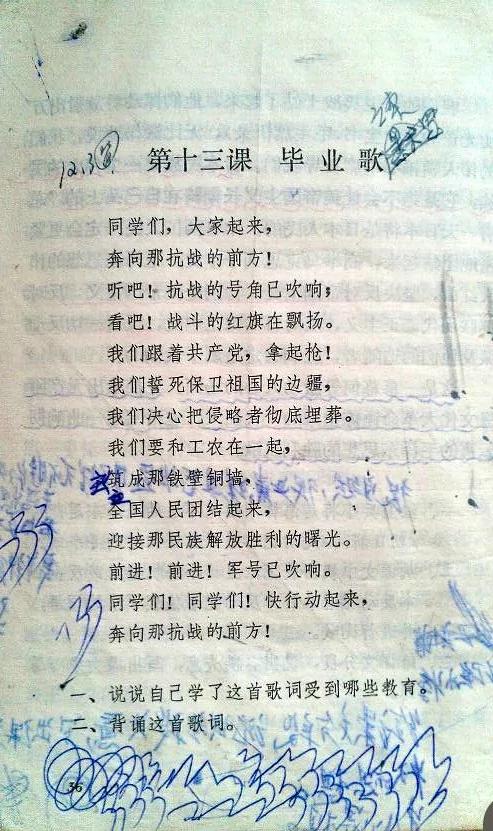 12.3
第十三课 毕业歌
同学们，大家起来，
奔向那抗战的前方！
听吧！抗战的号角已吹响；
看吧！战斗的红旗在飘扬。
我们跟着共产党，拿起枪！
我们誓死保卫祖国的边疆，
我们决心把侵略者彻底埋葬。
我们要和工农在一起，
筑成那铁壁铜墙，
全国人民团结起来，
迎接那民族解放胜利的曙光。
前进！前进！军号已吹响。
同学们！同学们！快行动起来，
奔向那抗战的前方！
一、说说自己学了这首歌词受到哪些教育。
二、背诵这首歌词。
36